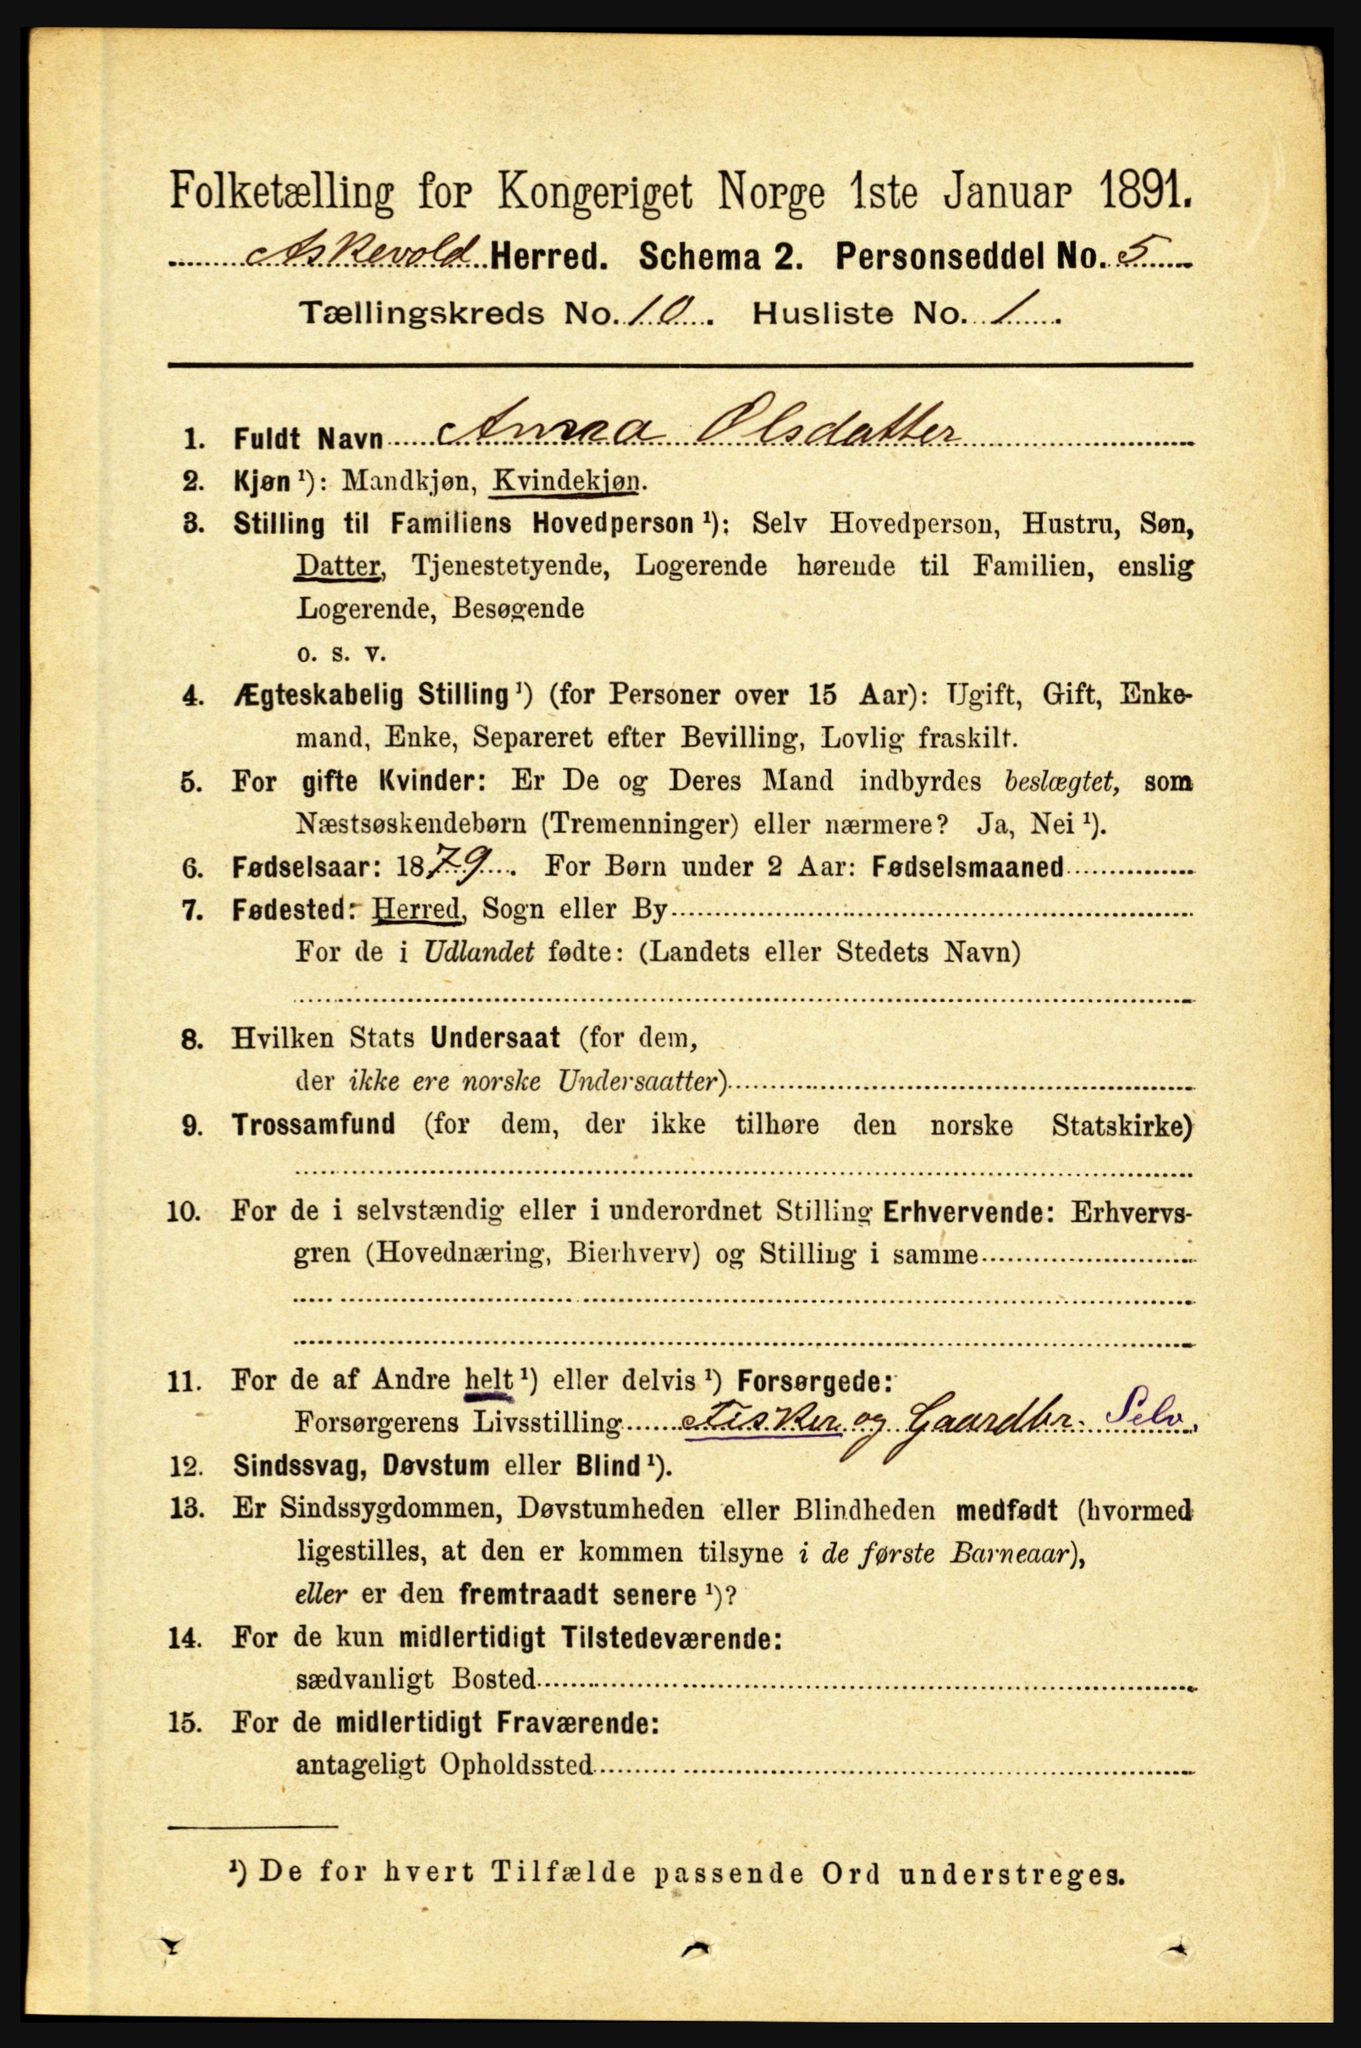 Folketælling for Kongeriget Norge 1ste Januar 1891.
Askevold Herred. Schema 2. Personseddel No. 5
Tællingskreds No. 10. Husliste No. 1.
1. Fuldt Navn Anna Olsdatter
2. Kjøn¹): Mandkjøn, Kvindekjøn.
3. Stilling til Familiens Hovedperson¹): Selv Hovedperson, Hustru, Søn,
Datter, Tjenestetyende, Logerende hørende til Familien, enslig
Logerende, Besøgende
o. s. v.
4. Ægteskabelig Stilling¹) (for Personer over 15 Aar): Ugift, Gift, Enke-
mand, Enke, Separeret efter Bevilling, Lovlig fraskilt.
5. For gifte Kvinder: Er De og Deres Mand indbyrdes beslægtet, som
Næstsøskendebørn (Tremenninger) eller nærmere? Ja, Nei¹).
6. Fødselsaar: 1879. For Børn under 2 Aar: Fødselsmaaned
7. Fødested: Herred, Sogn eller By
For de i Udlandet fødte: (Landets eller Stedets Navn)
8. Hvilken Stats Undersaat (for dem,
der ikke ere norske Undersaatter)
9. Trossamfund (for dem, der ikke tilhøre den norske Statskirke)
10. For de i selvstændig eller i underordnet Stilling Erhvervende: Erhvervs-
gren (Hovednæring, Bierhverv) og Stilling i samme
11. For de af Andre helt¹) eller delvis¹) Forsørgede:
Forsørgerens Livsstilling Fisker og Gaardbr. Selv.
12. Sindssvag, Døvstum eller Blind¹).
13. Er Sindssygdommen, Døvstumheden eller Blindheden medfødt (hvormed
ligestilles, at den er kommen tilsyne i de første Barneaar),
eller er den fremtraadt senere¹)?
14. For de kun midlertidigt Tilstedeværende:
sædvanligt Bosted
15. For de midlertidigt Fraværende:
antageligt Opholdssted
¹) De for hvert Tilfælde passende Ord understreges.